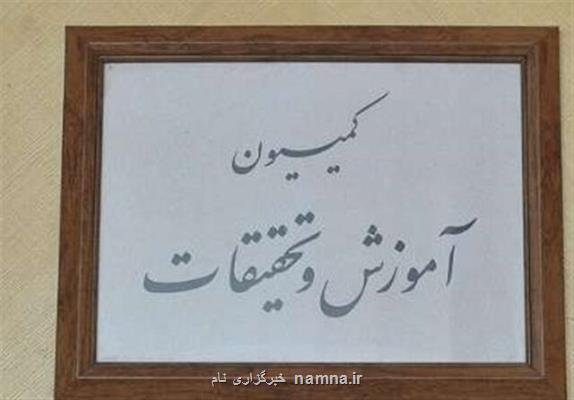 کمیسیون
آموزش و تحقیقات
خبرگزاری نام namna.ir